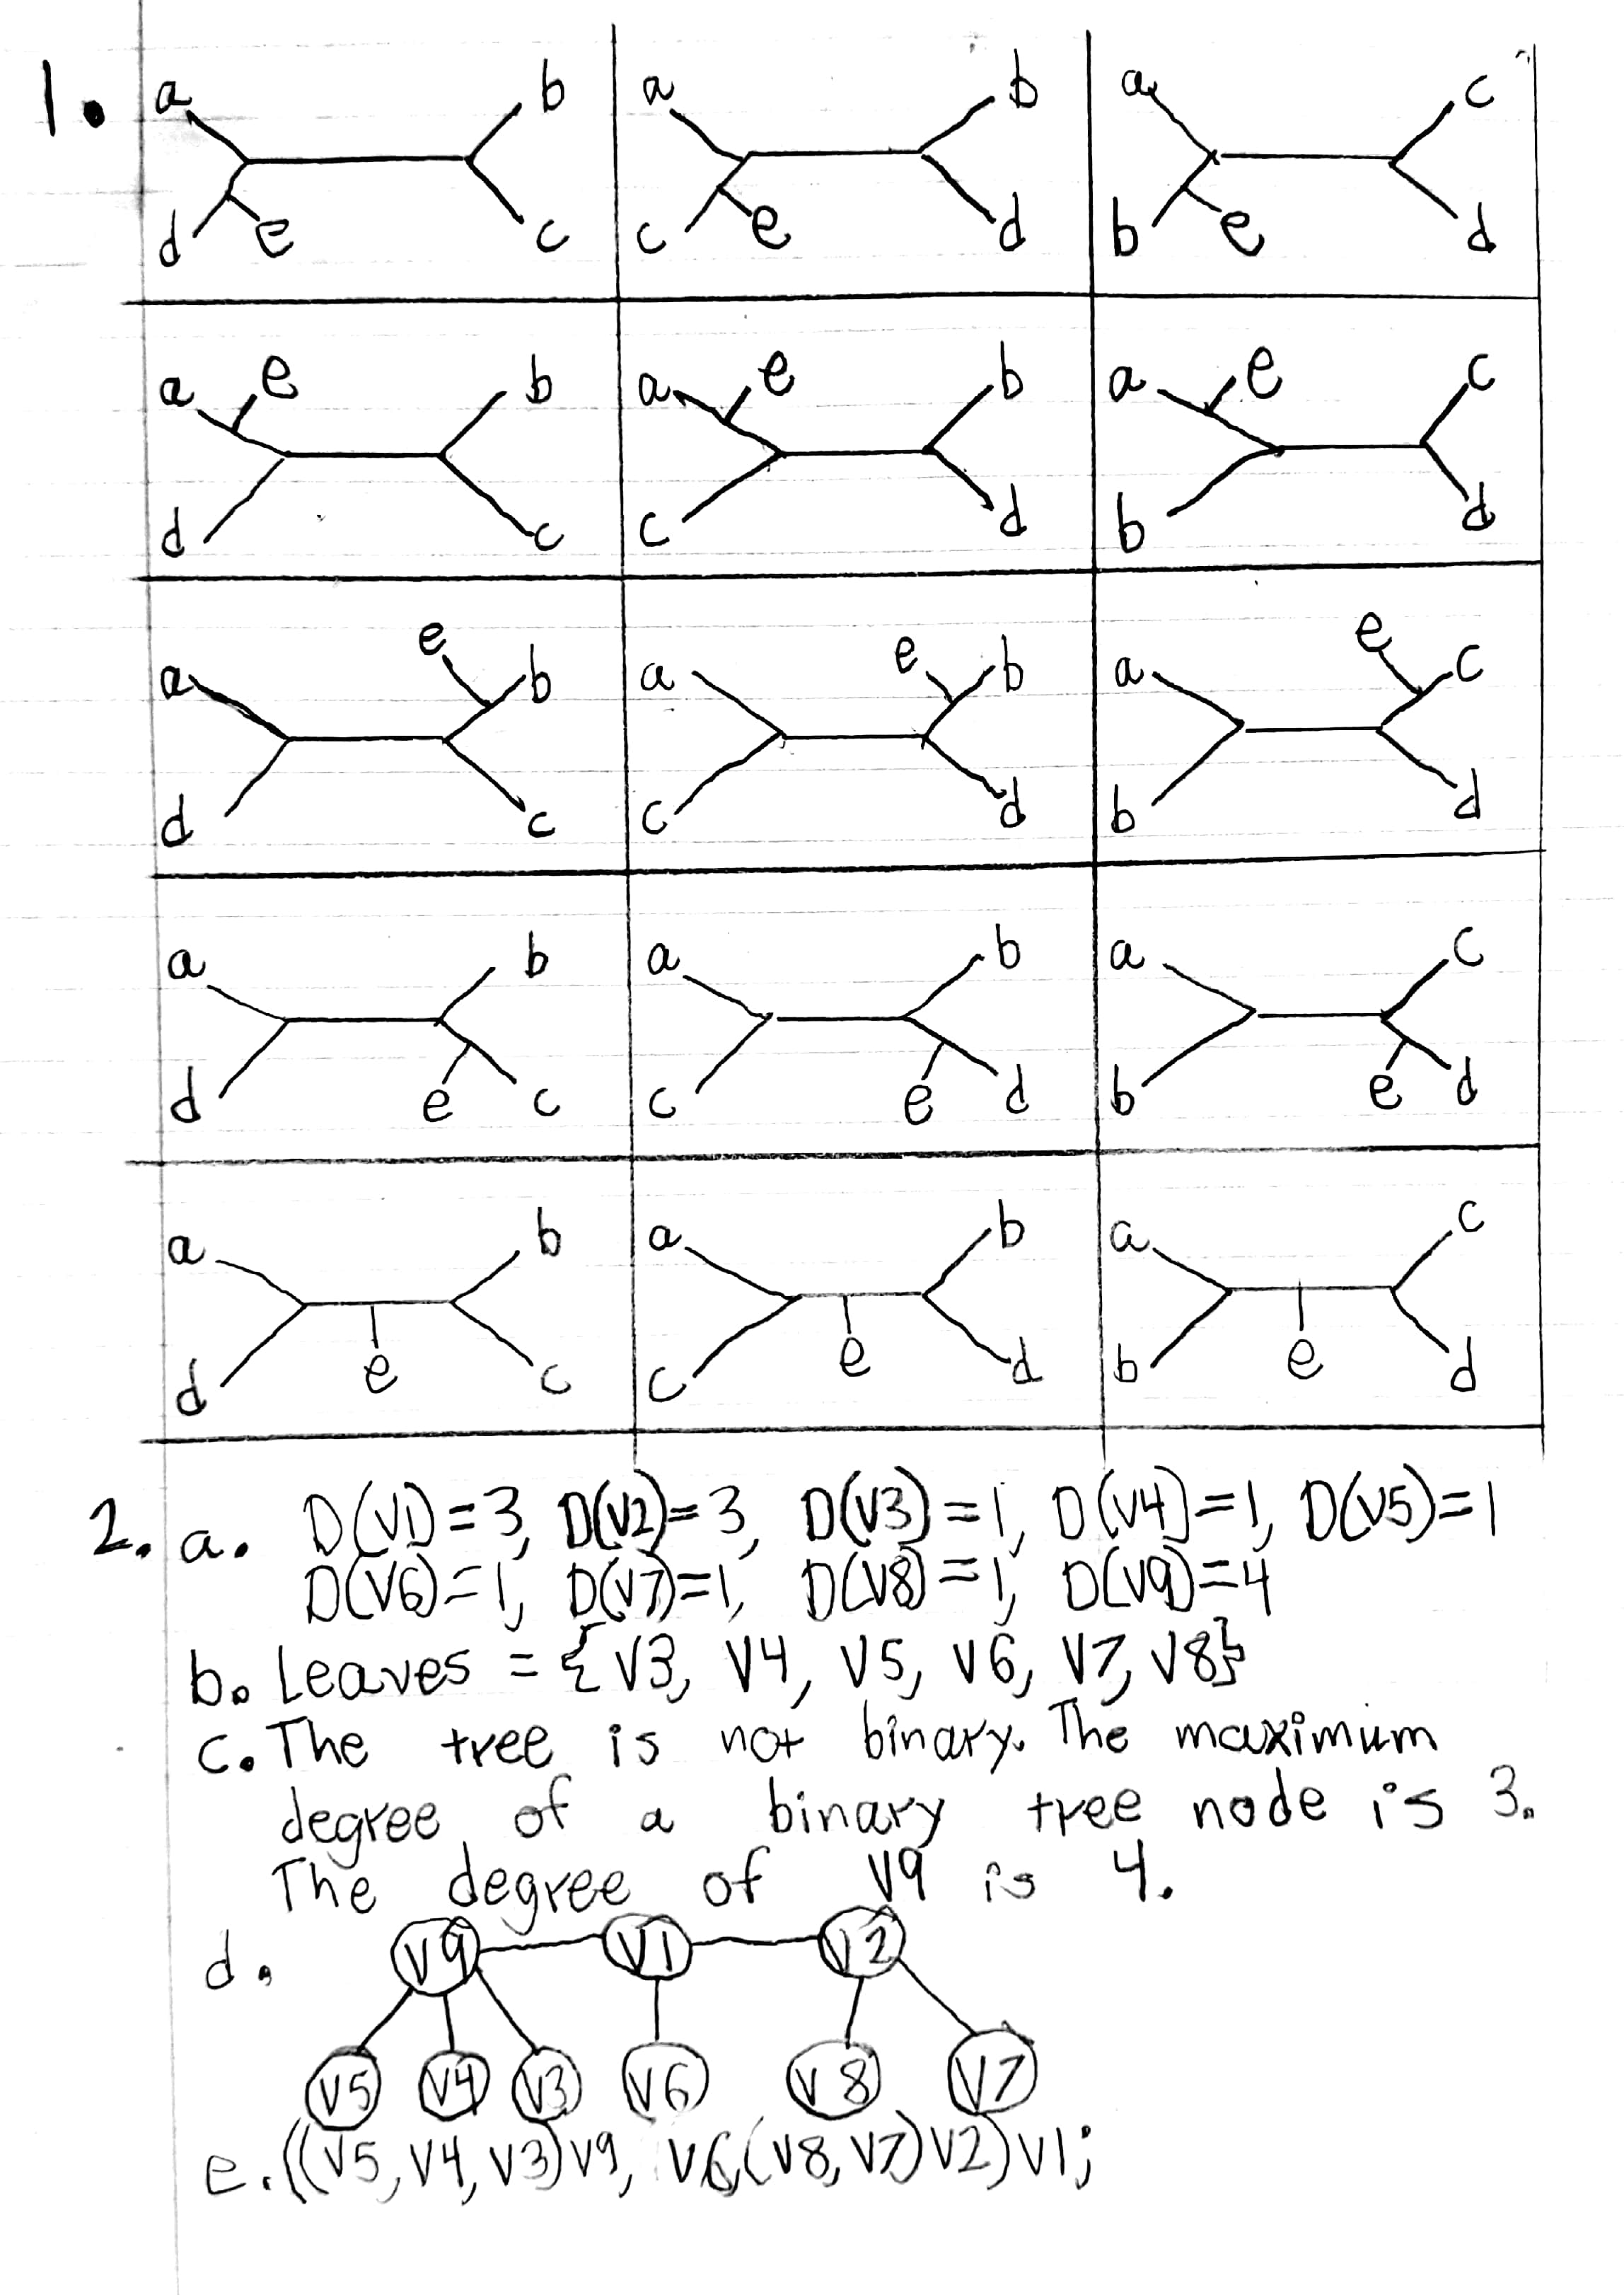 1.
a b a b a c
d e c c e d b e d
a e b a e b a e c
d c c d b d
a e b a e b a e c
d c c d b d
a b a b a c
d e c c e d b e d
a b a b a c
d e c c e d b e d
2. a. D(V1)=3, D(V2)=3, D(V3)=1, D(V4)=1, D(V5)=1
D(V6)=1, D(V7)=1, D(V8)=1, D(V9)=4
b. Leaves = {V3, V4, V5, V6, V7, V8}
c. The tree is not binary. The maximum
degree of a binary tree node is 3.
The degree of V9 is 4.
d. V9 V1 V2
V5 V4 V3 V6 V8 V7
e. ((V5, V4, V3)V9, V6, (V8, V7)V2)V1;